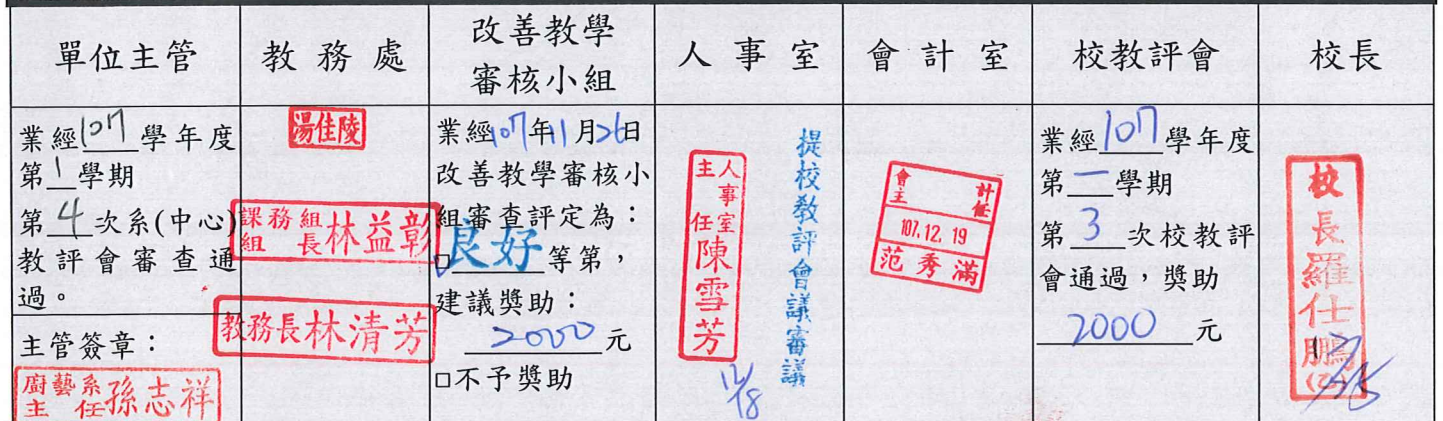 單位主管
教務處
改善教學
審核小組
人事室
會計室
校教評會
校長
業經107學年度
第1學期
第4次系(中心)
教評會審查通
過。
主管簽章：
廚藝系
主任孫志祥
湯佳陵
課務組
組長林益彰
教務長林清芳
業經107年11月26日
改善教學審核小
組審查評定為：
□良好等第，
建議獎助：
2000元
□不予獎助
人事室
主任陳雪芳
提校教評會議審議
12/18
會計
主任
107.12.19
范秀滿
業經107學年度
第一學期
第3次校教評
會通過，獎助
2000元
校長羅仕鵬(乙)